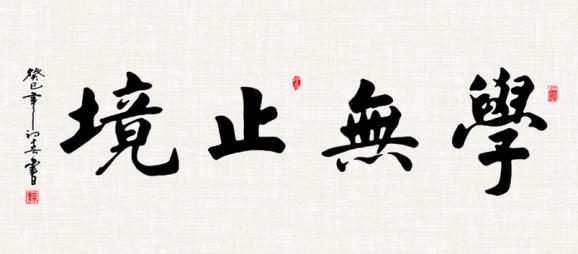 學無止境
癸巳年初春書